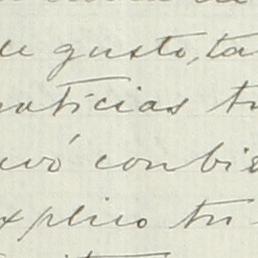 de gusto, ta
noticias tu
uvó conbie
xplico tu